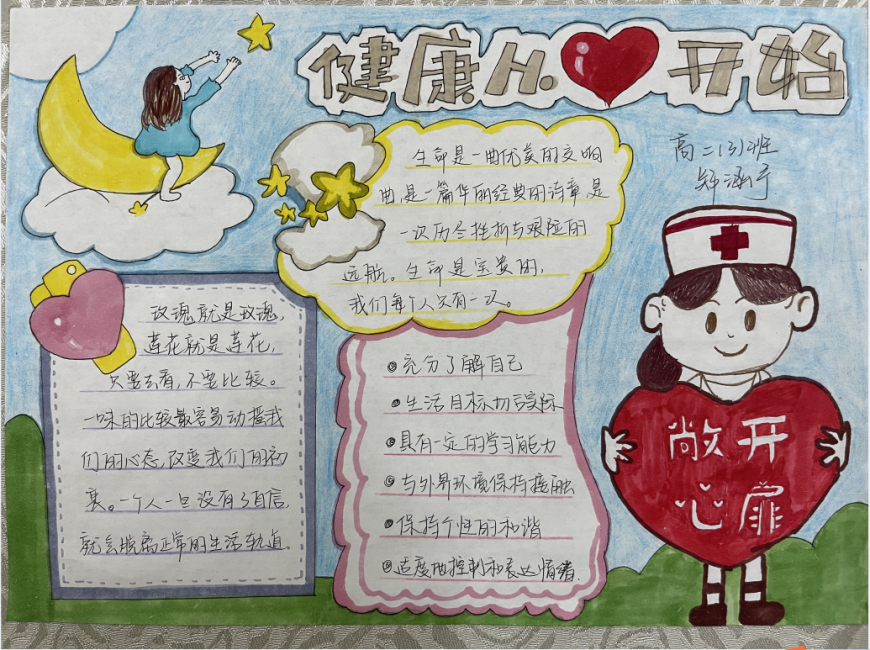 健康从 开始
高二(3)班
郑涵予
生命是一曲优美的交响
曲,是一篇华丽的经典的诗章,是
一次历尽挫折与艰险的
远航。生命是宝贵的,
我们每个人只有一次。
玫瑰就是玫瑰,
莲花就是莲花,
只要去看,不要比较。
一味的比较最容易动摇我
们的心态,改变我们的初
衷。一个人一旦没有了自信
就会脱离正常的生活轨道.
充分了解自己
生活目标切合实际
具有一定的学习能力
与外界环境保持接触
保持个性的和谐
适度地控制和表达情绪.
敞开
心扉